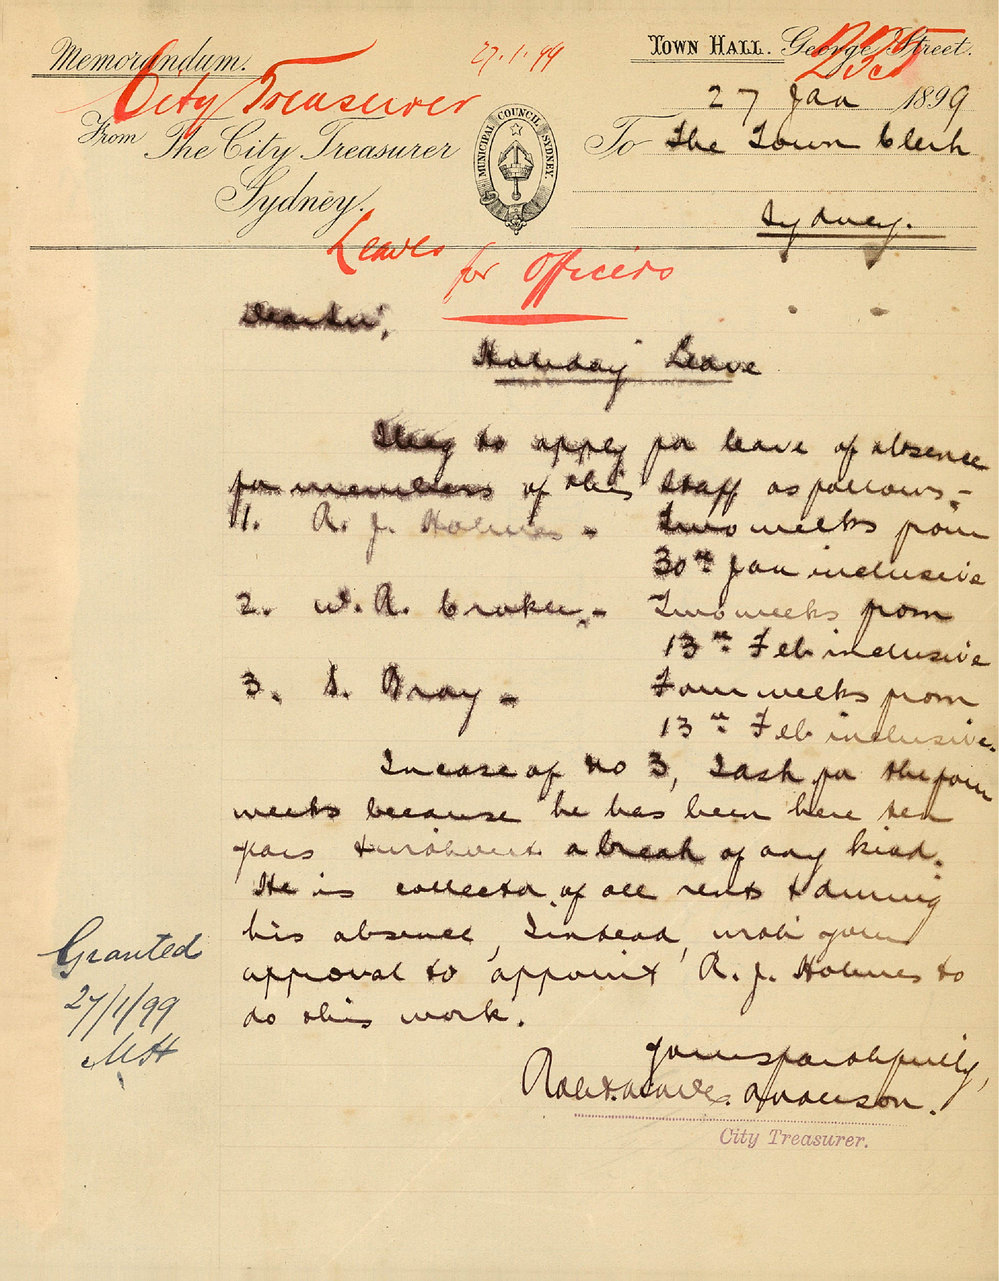 Memorandum.
27.1.99
Town Hall. George Street.
City Treasurer
27 Jan 1899
From The City Treasurer
Sydney.
MUNICIPAL COUNCIL SYDNEY.
To The Town Clerk
Sydney.
Leaves for Officers
Dear Sir,
Holiday Leave
I beg to apply for leave of absence
for members of this staff as follows:-
1. R. J. Holmes - Two weeks from
30th Jan inclusive
2. W. R. Croker - Two weeks from
13th Feb inclusive
3. S. Bray - Four weeks from
13th Feb inclusive.
In case of No 3, I ask for the four
weeks because he has been here ten
years without a break of any kind.
He is collector of all rents & during
his absence, I intend, with your
approval to appoint R. J. Holmes to
do this work.
Granted
27/1/99
MH
Yours faithfully,
Anderson.
City Treasurer.